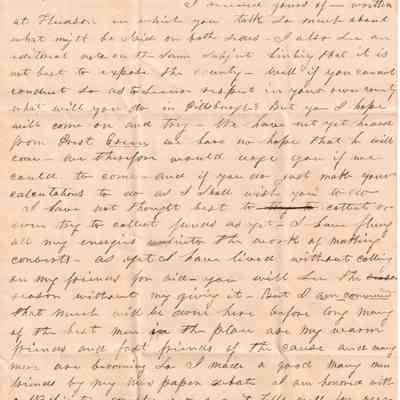 I received yours of — written
at Hudson in which you talk so much about
what might be said on both sides — I also see an
editorial note on the same subject hinting that it is
not best to expose the county — well if you cannot
conduct so as to secure respect in your own county
what will you do in Pittsburgh? But you I hope
will come on and try — We have not yet heard
from we have no hope that he will
come — we therefore would urge you if we
could to come — and if you do just make your
calculations to do as I shall wish you to do
I have not thought best to collect or
even try to collect funds as yet — I have flung
all my energies into the work of making
converts — as yet I have lived without calling
on my friends for aid — you will see the
reason without my giving it — But I am convinced
that much will be done here before long many
of the best men in the place are my warm
friends and fast friends of the cause and many
more are becoming so I made a good many
friends by my news paper debate I am honored with